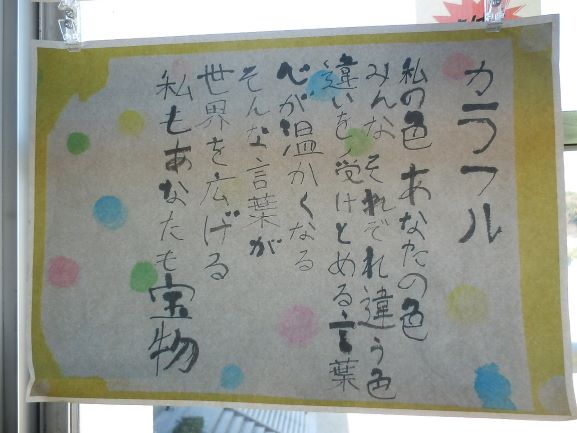 カラフル
私の色あなたの色
みんなそれぞれ違う色
違いを受けとめる言葉
心が温かくなる
そんな言葉が
世界を広げる
私もあなたも宝物